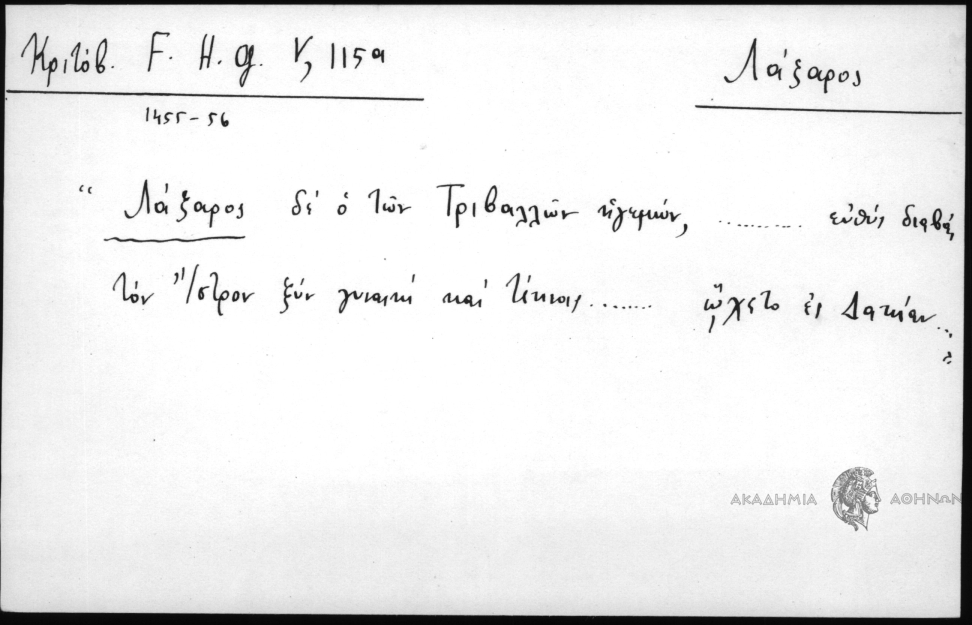 Κριτόβ. F. H. g. V, 115a
Λάξαρος
1455-56
“ Λάξαρος δέ ὁ τῶν Τριβαλλῶν ἡγεμών, ......... εὐθύς διαβάς
τόν Ἴστρον ξύν γυναικί καί τέκνοις ....... ᾤχετο ἐς Δακίαν...
ΑΚΑΔΗΜΙΑ ΑΘΗΝΩΝ